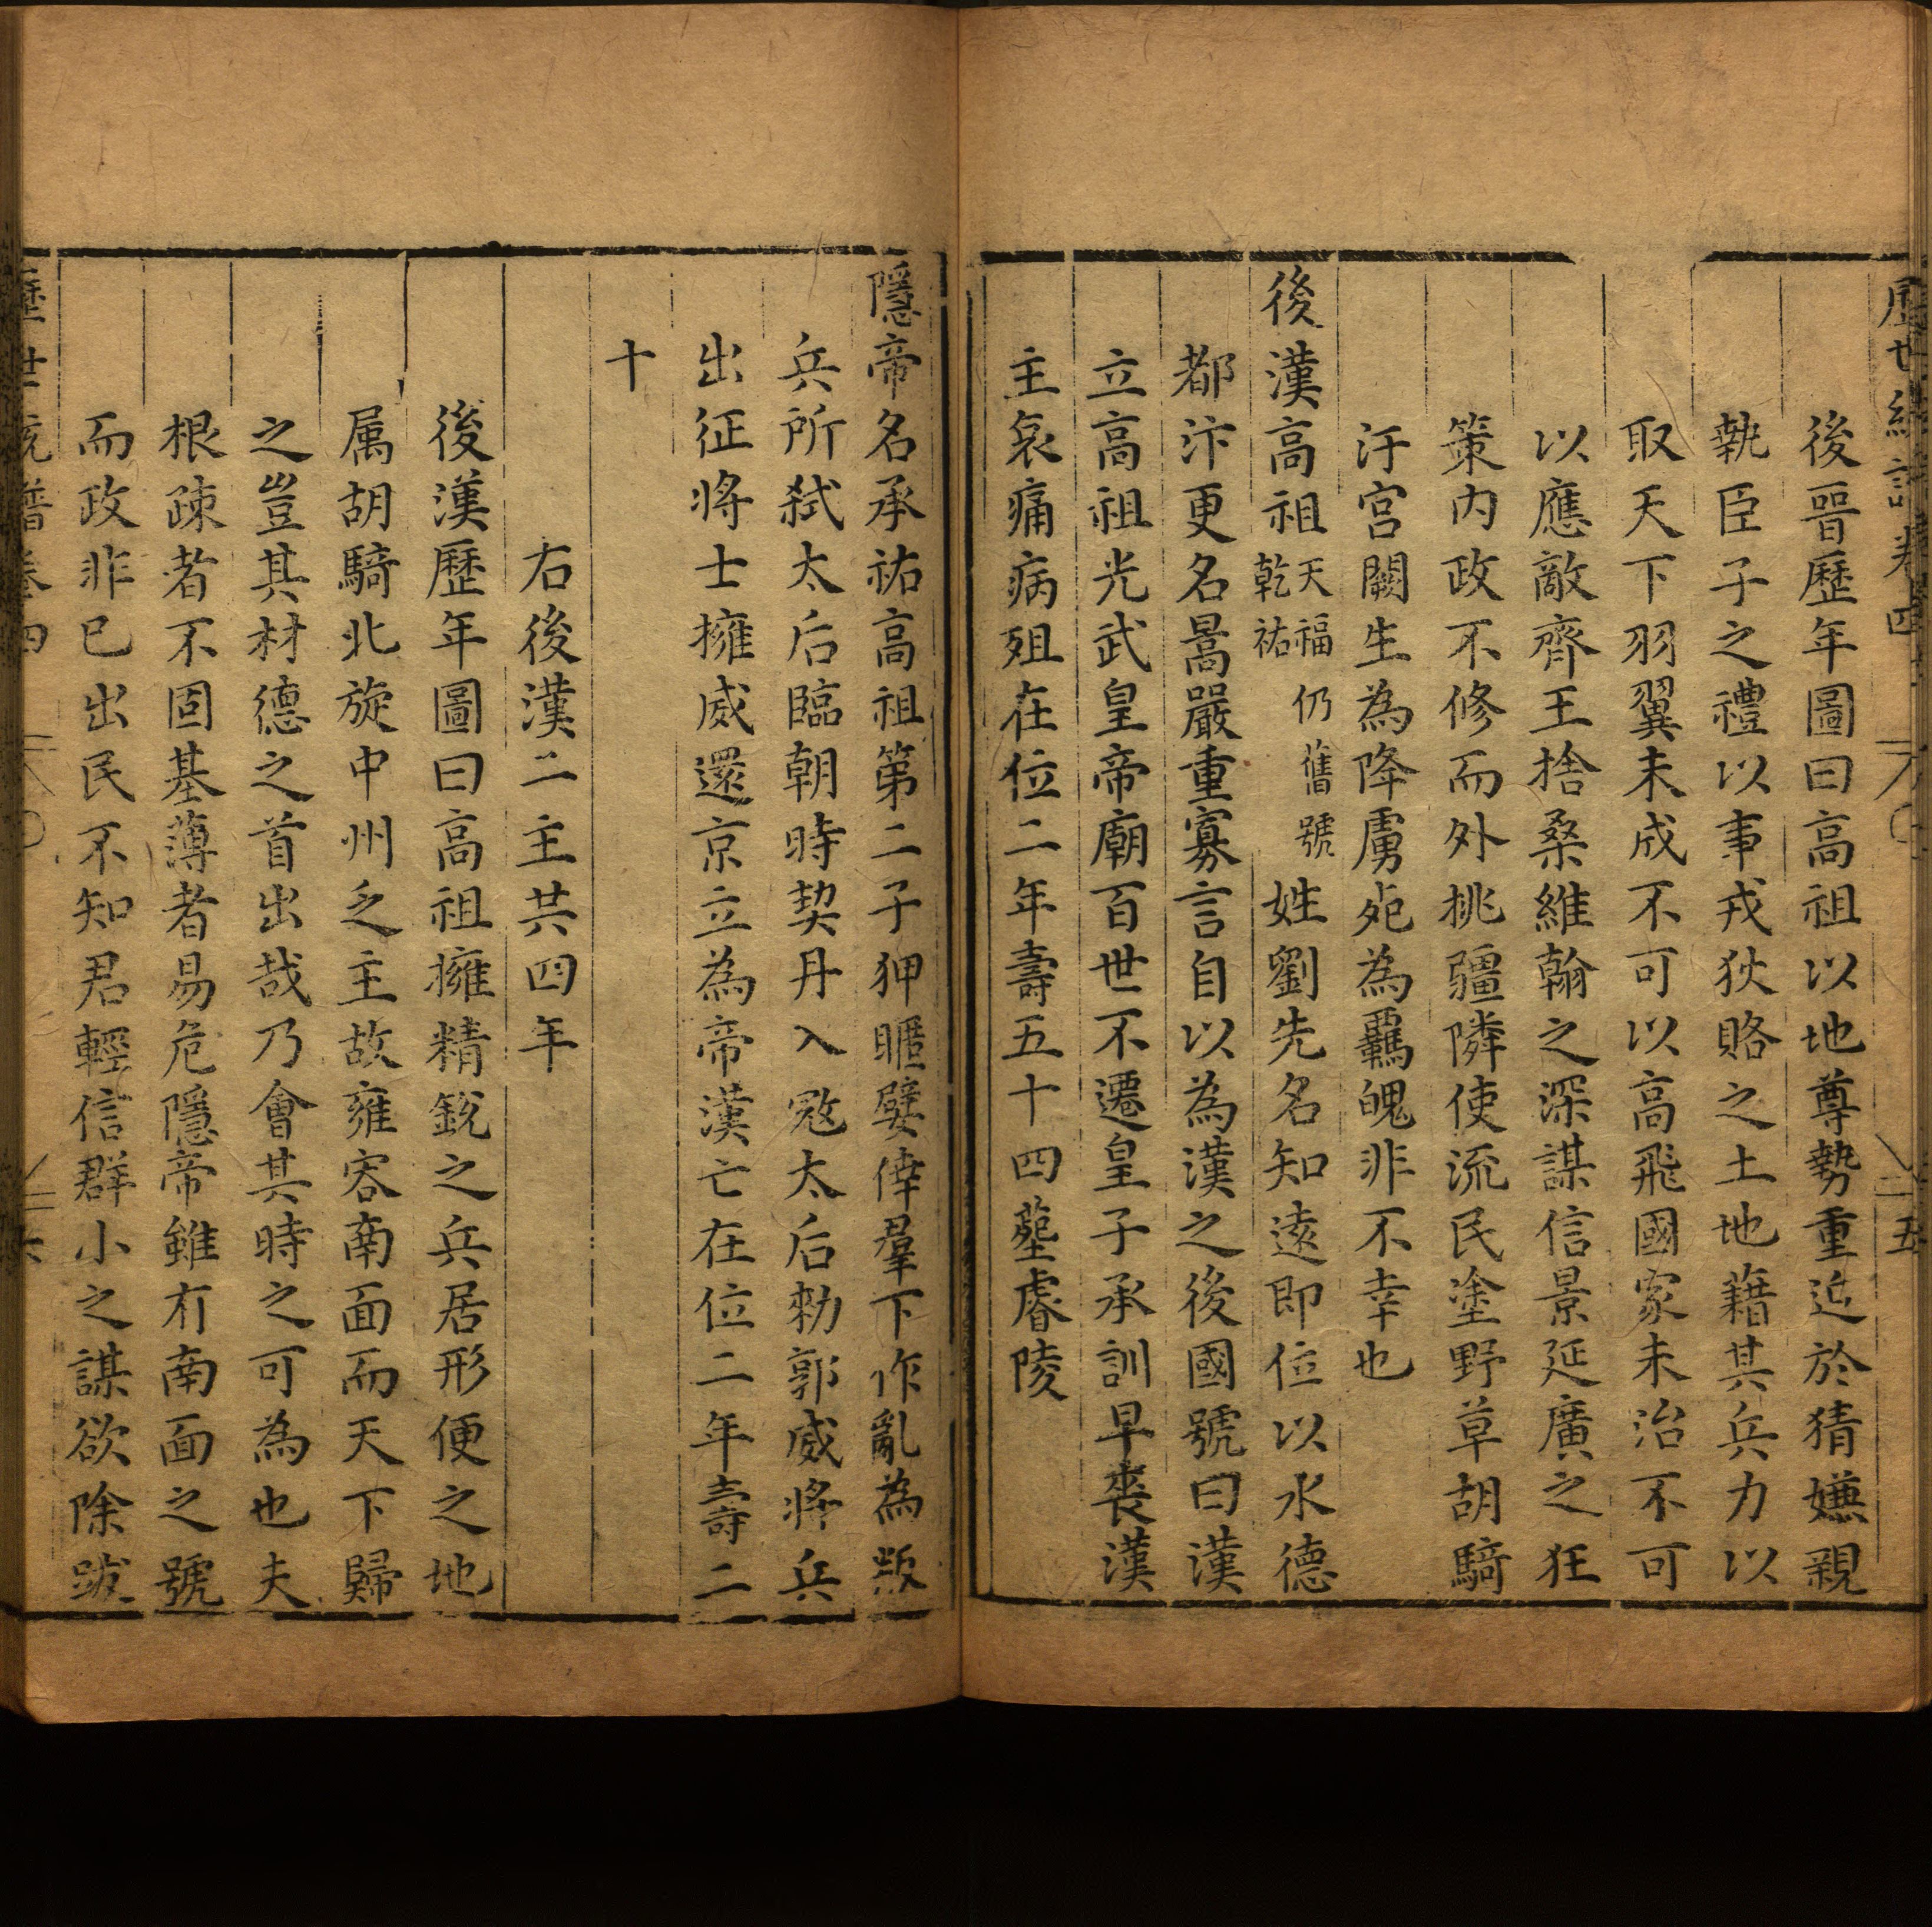 歷世統譜卷四 五
後晉歷年圖曰高祖以地尊勢重迫於猜嫌親
執臣子之禮以事戎狄賂之土地藉其兵力以
取天下羽翼未成不可以高飛國家未治不可
以應敵齊王捨桑維翰之深謀信景延廣之狂
策內政不修而外挑疆隣使流民塗野草胡騎
汙宮闕生為降虜死為羈魄非不幸也
後漢高祖天福乾祐仍舊號姓劉先名知遠即位以水德
都汴更名暠嚴重寡言自以為漢之後國號曰漢
立高祖光武皇帝廟百世不遷皇子承訓早喪漢
主哀痛病殂在位二年壽五十四塟睿陵
隱帝名承祐高祖第二子狎暱嬖倖羣下作亂為叛
兵所弒太后臨朝時契丹入宼太后勑郭威將兵
出征將士擁威還京立為帝漢亡在位二年壽二
十
右後漢二主共四年
後漢歷年圖曰高祖擁精銳之兵居形便之地
属胡騎北旋中州乏主故雍容南面而天下歸
之豈其材德之首出哉乃會其時之可為也夫
根疎者不固基薄者易危隱帝雖有南面之號
而政非已出民不知君輕信群小之謀欲除跋
歷世統譜卷四 六